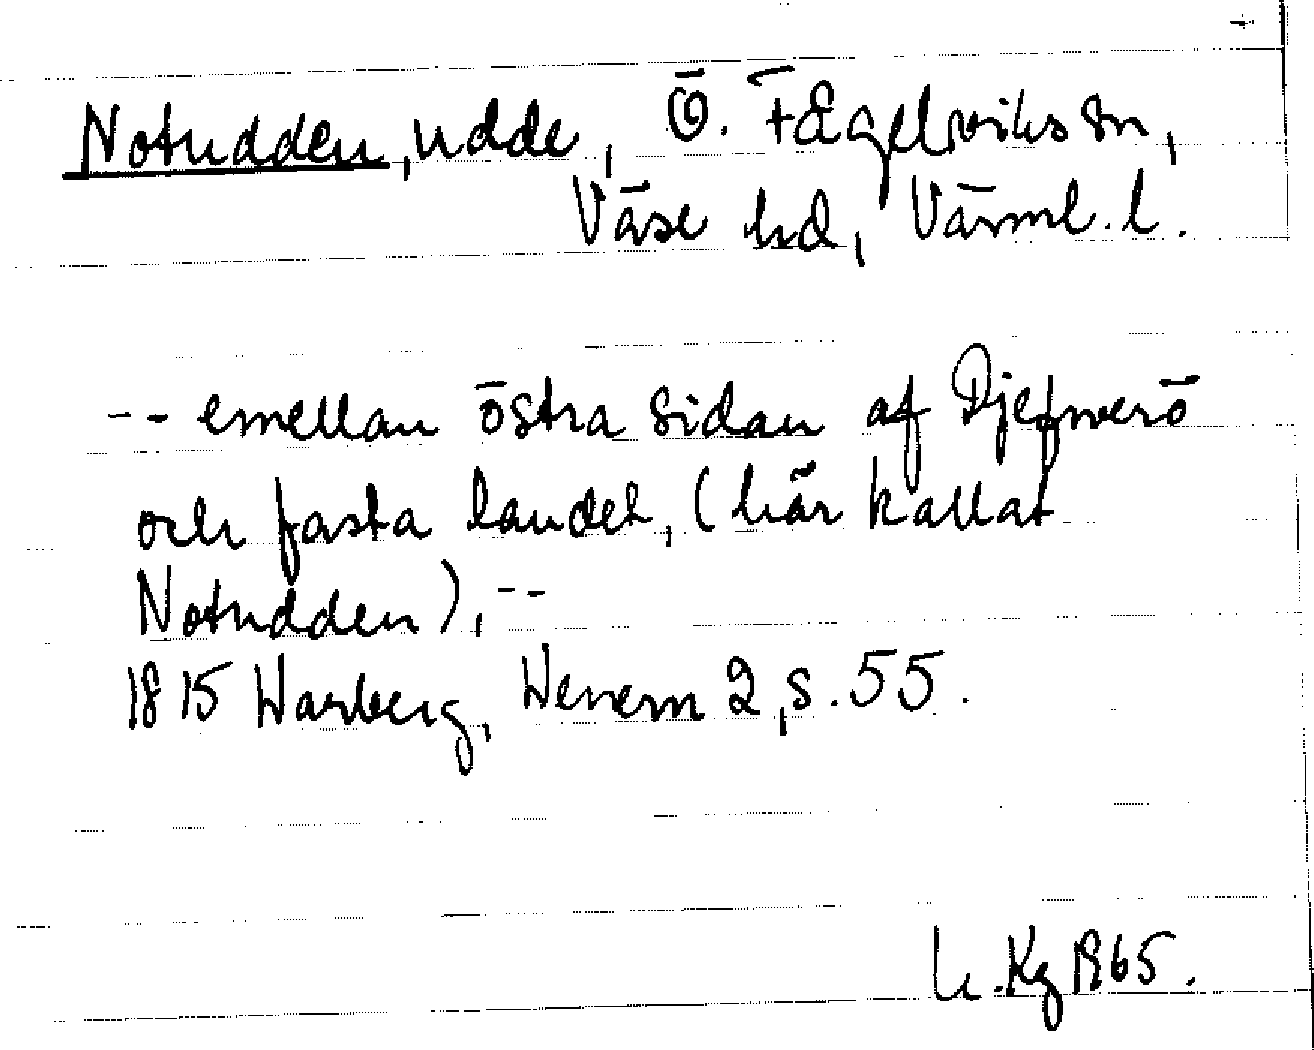 Notudden, udde, Ö. Fågelviks sn,
Väse hd, Värml. l.
-- emellan östra sidan af Djefwerö
och fasta landet, (här kallat
Notudden), --
1815 Warberg, Wenern 2, s. 55.
Kg 1965.